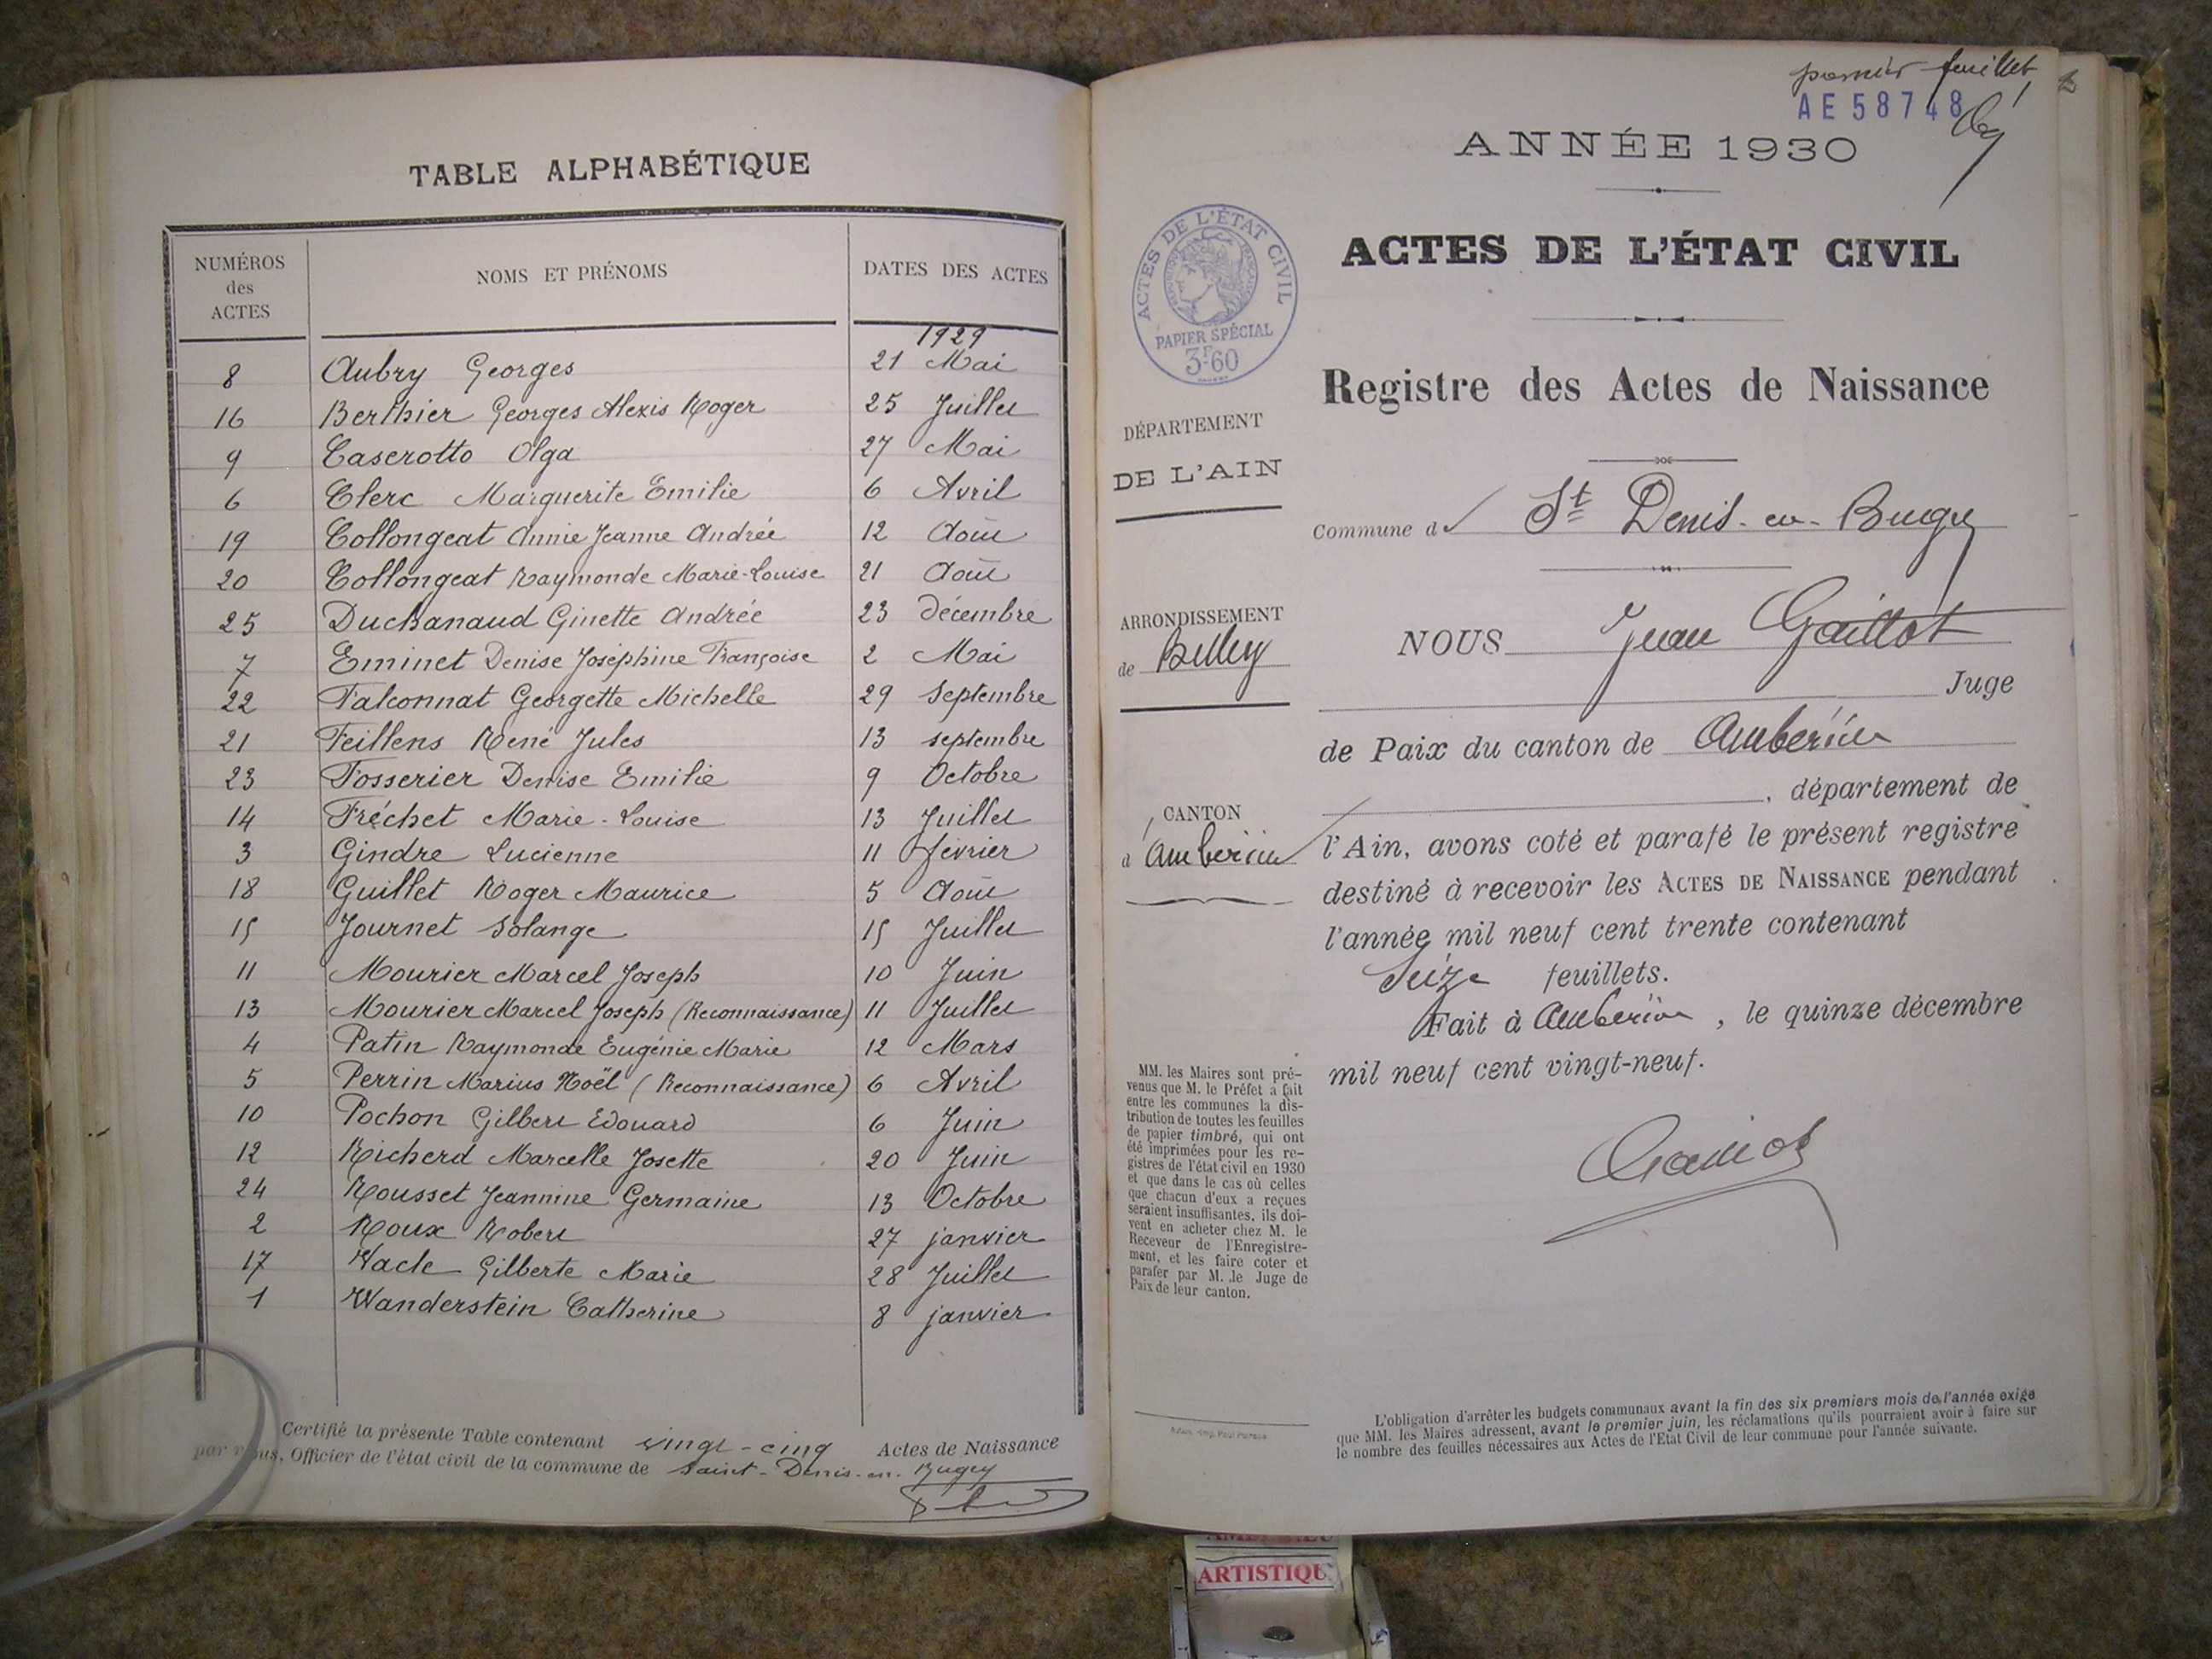 TABLE ALPHABÉTIQUE
NUMÉROS des ACTES NOMS ET PRÉNOMS DATES DES ACTES
1929
8 Aubry Georges 21 Mai
16 Berthier Georges Alexis Roger 25 Juillet
9 Caserotto Olga 27 Mai
6 Clerc Marguerite Emilie 6 Avril
19 Collongeat Annie Jeanne Andrée 12 Août
20 Collongeat Raymonde Marie-Louise 21 Août
25 Duchanaud Ginette Andrée 23 décembre
7 Eminet Denise Joséphine Françoise 2 Mai
22 Falconnat Georgette Michelle 29 septembre
21 Feillens René Jules 13 septembre
23 Fosserier Denise Emilie 9 Octobre
14 Fréchet Marie-Louise 13 Juillet
3 Gindre Lucienne 11 février
18 Guillet Roger Maurice 5 Août
15 Journet Solange 15 Juillet
11 Mourier Marcel Joseph 10 Juin
13 Mourier Marcel Joseph (Reconnaissance) 11 Juillet
4 Patin Raymonde Eugénie Marie 12 Mars
5 Perrin Marius Noël (Reconnaissance) 6 Avril
10 Pochon Gilbert Edouard 6 Juin
12 Richerd Marcelle Josette 20 Juin
24 Rousset Jeannine Germaine 13 Octobre
2 Roux Robert 27 janvier
17 Vacle Gilberte Marie 28 Juillet
1 Wanderstein Catherine 8 janvier
Certifié la présente Table contenant vingt-cinq Actes de Naissance
par nous, Officier de l'état civil de la commune de Saint-Denis-en-Bugey
premier feuillet
AE58748
ANNÉE 1930
ACTES DE L'ÉTAT CIVIL
PAPIER SPÉCIAL
3F60
ACTES DE L'ÉTAT CIVIL
Registre des Actes de Naissance
DÉPARTEMENT
DE L'AIN
Commune d St Denis-en-Bugey
ARRONDISSEMENT
de Belley
NOUS Jean Gaillot
Juge
de Paix du canton de Ambérieu
, département de
CANTON
d'Ambérieu
l'Ain, avons coté et parafé le présent registre
destiné à recevoir les ACTES DE NAISSANCE pendant
l'année mil neuf cent trente contenant
Seize feuillets.
Fait à Ambérieu, le quinze décembre
mil neuf cent vingt-neuf.
MM. les Maires sont pré-
venus que M. le Préfet a fait
entre les communes la dis-
tribution de toutes les feuilles
de papier timbré, qui ont
été imprimées pour les re-
gistres de l'état civil en 1930
et que dans le cas où celles
que chacun d'eux a reçues
seraient insuffisantes, ils doi-
vent en acheter chez M. le
Receveur de l'Enregistre-
ment, et les faire coter et
parafer par M. le Juge de
Paix de leur canton.
L'obligation d'arrêter les budgets communaux avant la fin des six premiers mois de l'année exige
que MM. les Maires adressent, avant le premier juin, les réclamations qu'ils pourraient avoir à faire sur
le nombre des feuilles nécessaires aux Actes de l'Etat Civil de leur commune pour l'année suivante.
ARTISTIQU